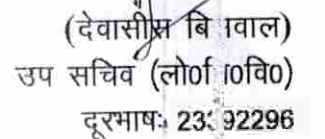 (देवासीस बि वाल)
उप सचिव (लो0 वि0)
दूरभाषः 23 92296